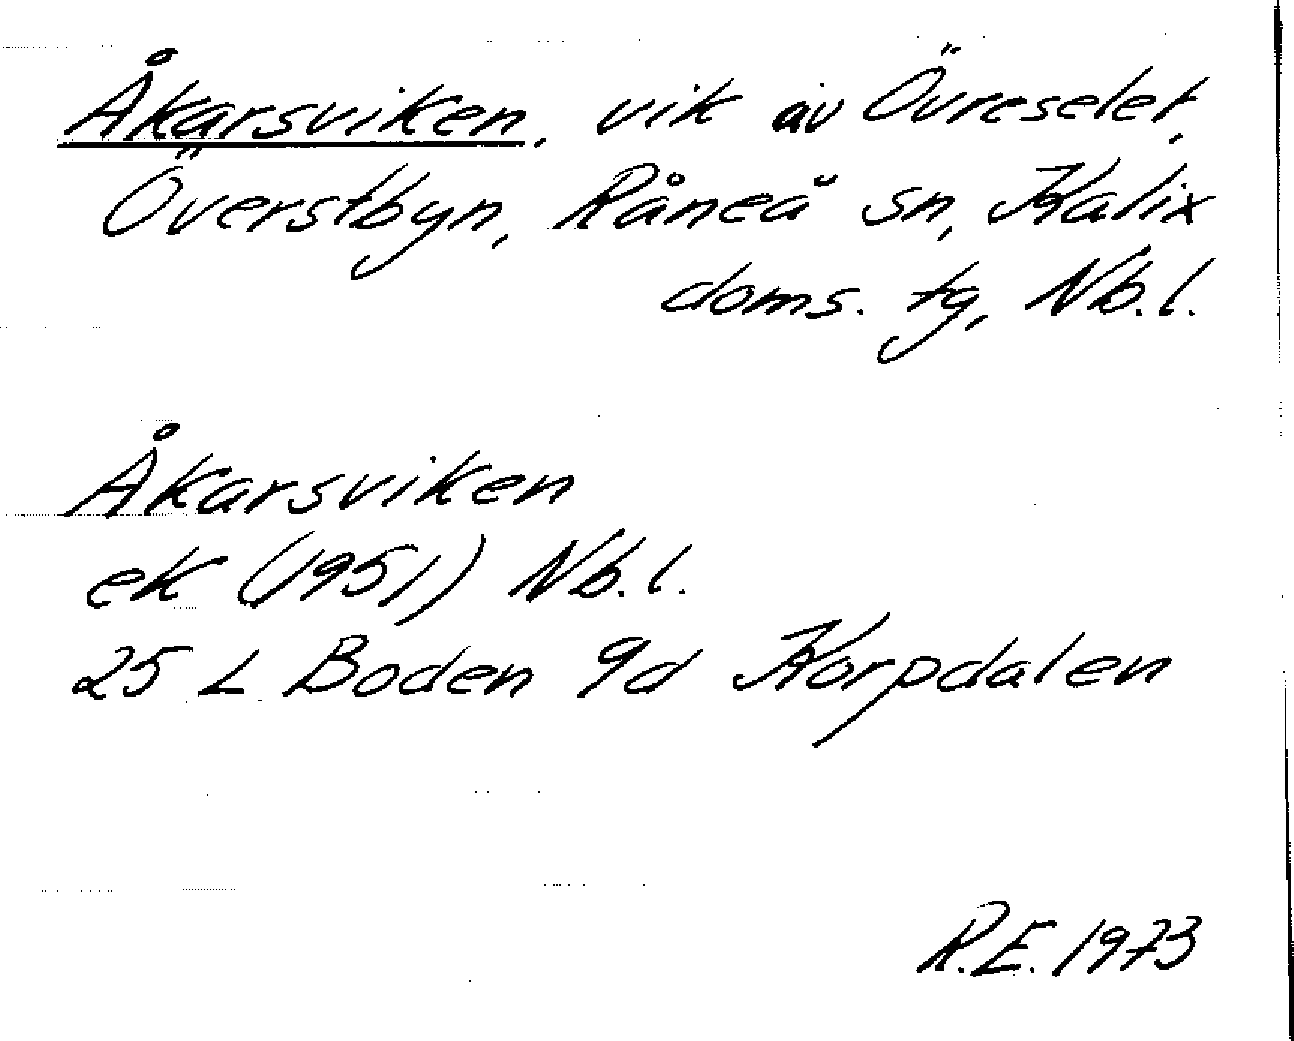 Åkarsviken, vik av Övreselet,
Överstbyn, Råneå sn, Kalix
doms. tg, Nb.l.
Åkarsviken
ek (1951) Nb.l.
25 L Boden 9d Korpdalen
R.E. 1973